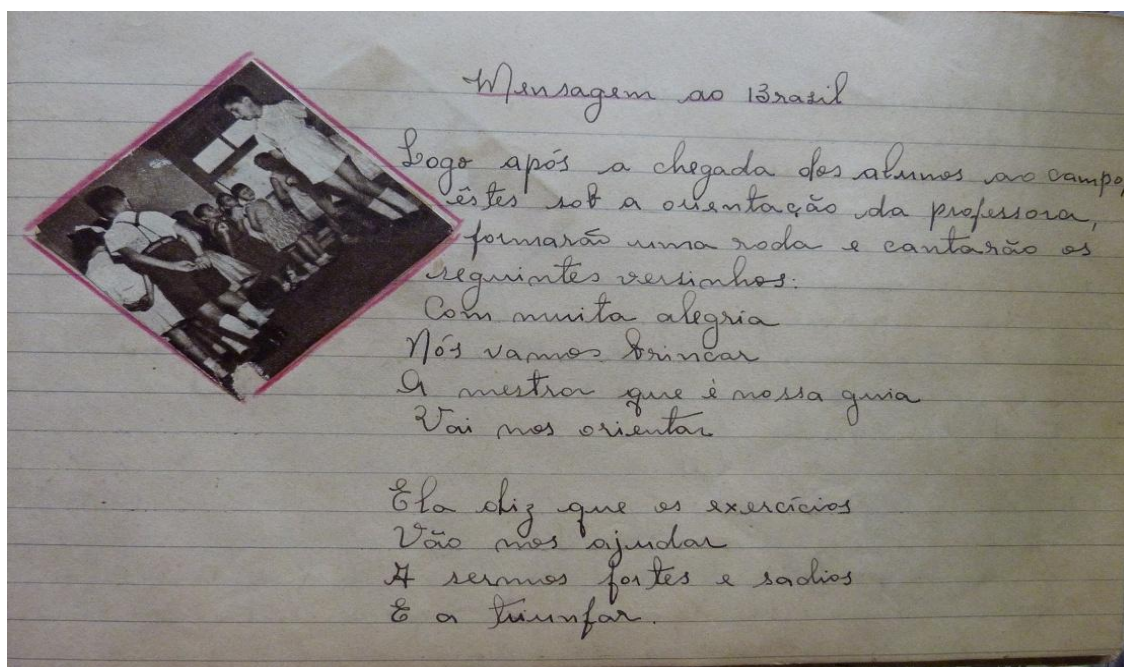 Mensagem ao Brazil
Logo após a chegada dos alunos ao campo,
êstes sob a orientação da professora,
formarão uma roda e cantarão os
seguintes versinhos:
Com muita alegria
Nós vamos brincar
A mestra que é nossa guia
Vai nos orientar
Ela diz que os exercícios
Vão nos ajudar
A sermos fortes e sadios
E a triunfar.